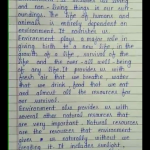 and non-living things in our sur-
roundings. The life of humans and
animals is entirely dependent on
Environment. It nourishes us.
Environment plays a major role in
giving birth to a new life, in the
growth of a life, survival of the
life and the over-all well being
of any life. It provides us with
fresh air that we breathe, water
that we drink, food that we eat
and almost all the resources for
our survival.
Environment also provides us with
several other natural resources that
are very important. Natural resources
are the resources that environment
gives us naturally without we
It includes sunlight,